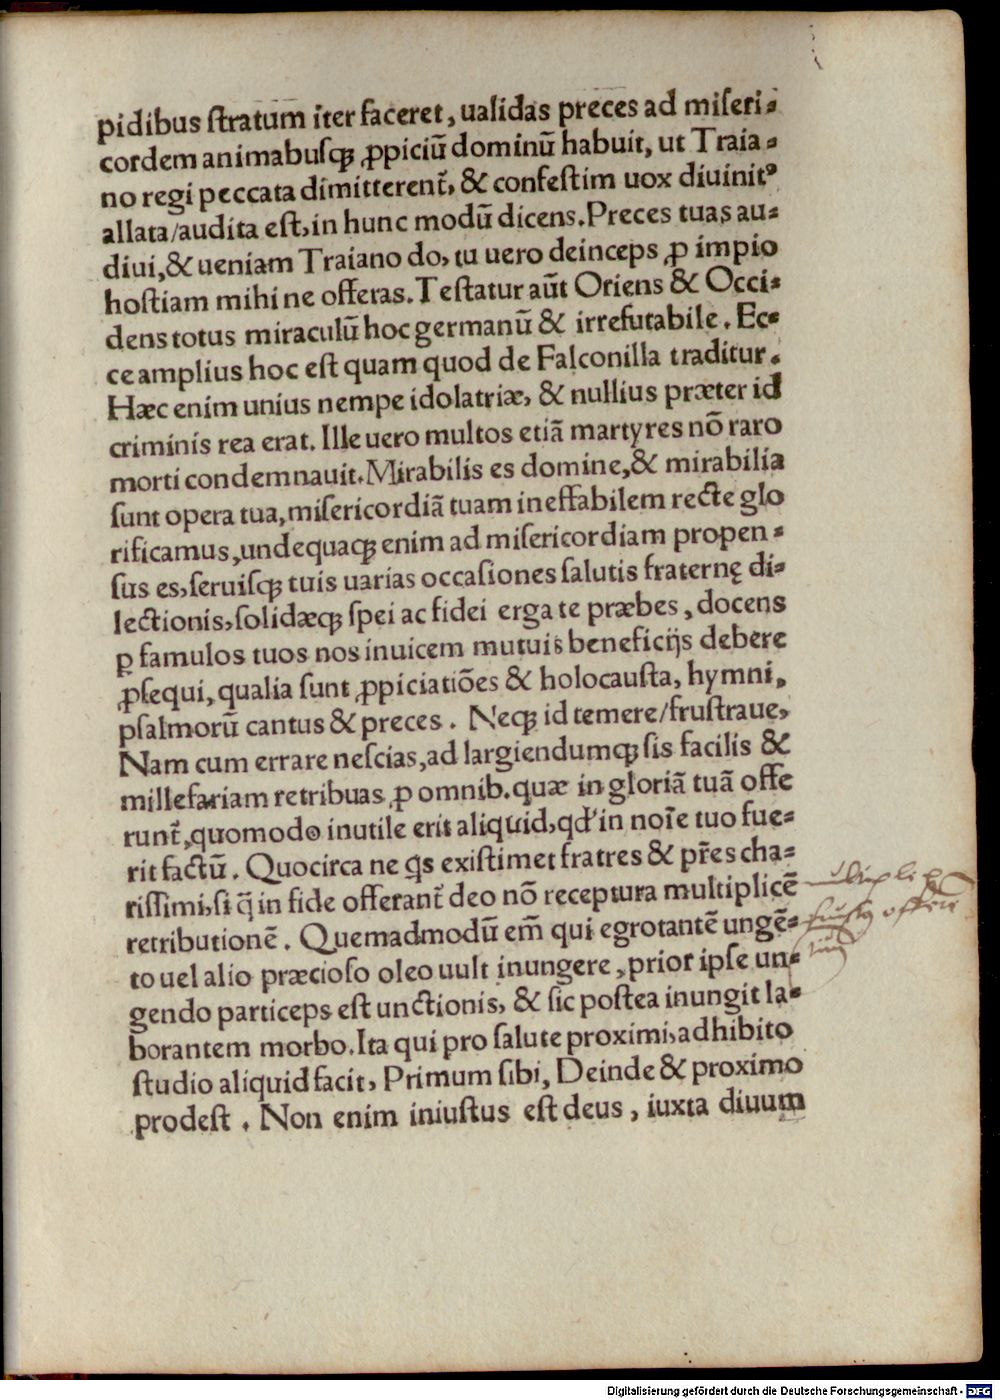 pidibus ſtratum iter faceret, ualidas preces ad miſeri-
cordem animabuſqꝫ ꝓpiciū dominū habuit, ut Traia-
no regi peccata dimitterent̃, & confeſtim uox diuinitꝰ
allata/audita eſt, in hunc modū dicens. Preces tuas au-
diui, & ueniam Traiano do, tu uero deinceps ꝓ impio
hoſtiam mihi ne offeras. Teſtatur aūt Oriens & Occi-
dens totus miraculū hoc germanū & irrefutabile. Ec-
ce amplius hoc eſt quam quod de Falconilla traditur.
Hæc enim unius nempe idolatriæ, & nullius præter id
criminis rea erat. Ille uero multos etiā martyres nō raro
morti condemnauit. Mirabilis es domine, & mirabilia
ſunt opera tua, miſericordiā tuam ineffabilem recte glo
rificamus, undequaqꝫ enim ad miſericordiam propen-
ſus es, ſeruiſqꝫ tuis uarias occaſiones ſalutis fraternę di-
lectionis, ſolidæqꝫ ſpei ac fidei erga te præbes, docens
ꝑ famulos tuos nos inuicem mutuis beneficijs debere
ꝓſequi, qualia ſunt ꝓpiciatiōes & holocauſta, hymni,
pſalmorū cantus & preces. Neqꝫ id temere/fruſtraue,
Nam cum errare neſcias, ad largiendumqꝫ ſis facilis &
millefariam retribuas ꝓ omnib. quæ in gloriā tuā offe
runt̃, quomodo inutile erit aliquid, qđ in noīe tuo fue-
rit factū. Quocirca ne q̇s exiſtimet fratres & pr̃es cha-
riſſimi, ſi q̄ in fide offerant̃ deo nō receptura multiplicē
retributionē. Quemadmodū em̄ qui egrotantē ungē-
to uel alio præcioſo oleo uult inungere, prior ipſe un-
gendo particeps eſt unctionis, & ſic poſtea inungit la-
borantem morbo. Ita qui pro ſalute proximi, adhibito
ſtudio aliquid facit, Primum ſibi, Deinde & proximo
prodeſt. Non enim iniuſtus eſt deus, iuxta diuum
Digitalisierung gefördert durch die Deutsche Forschungsgemeinschaft - DFG